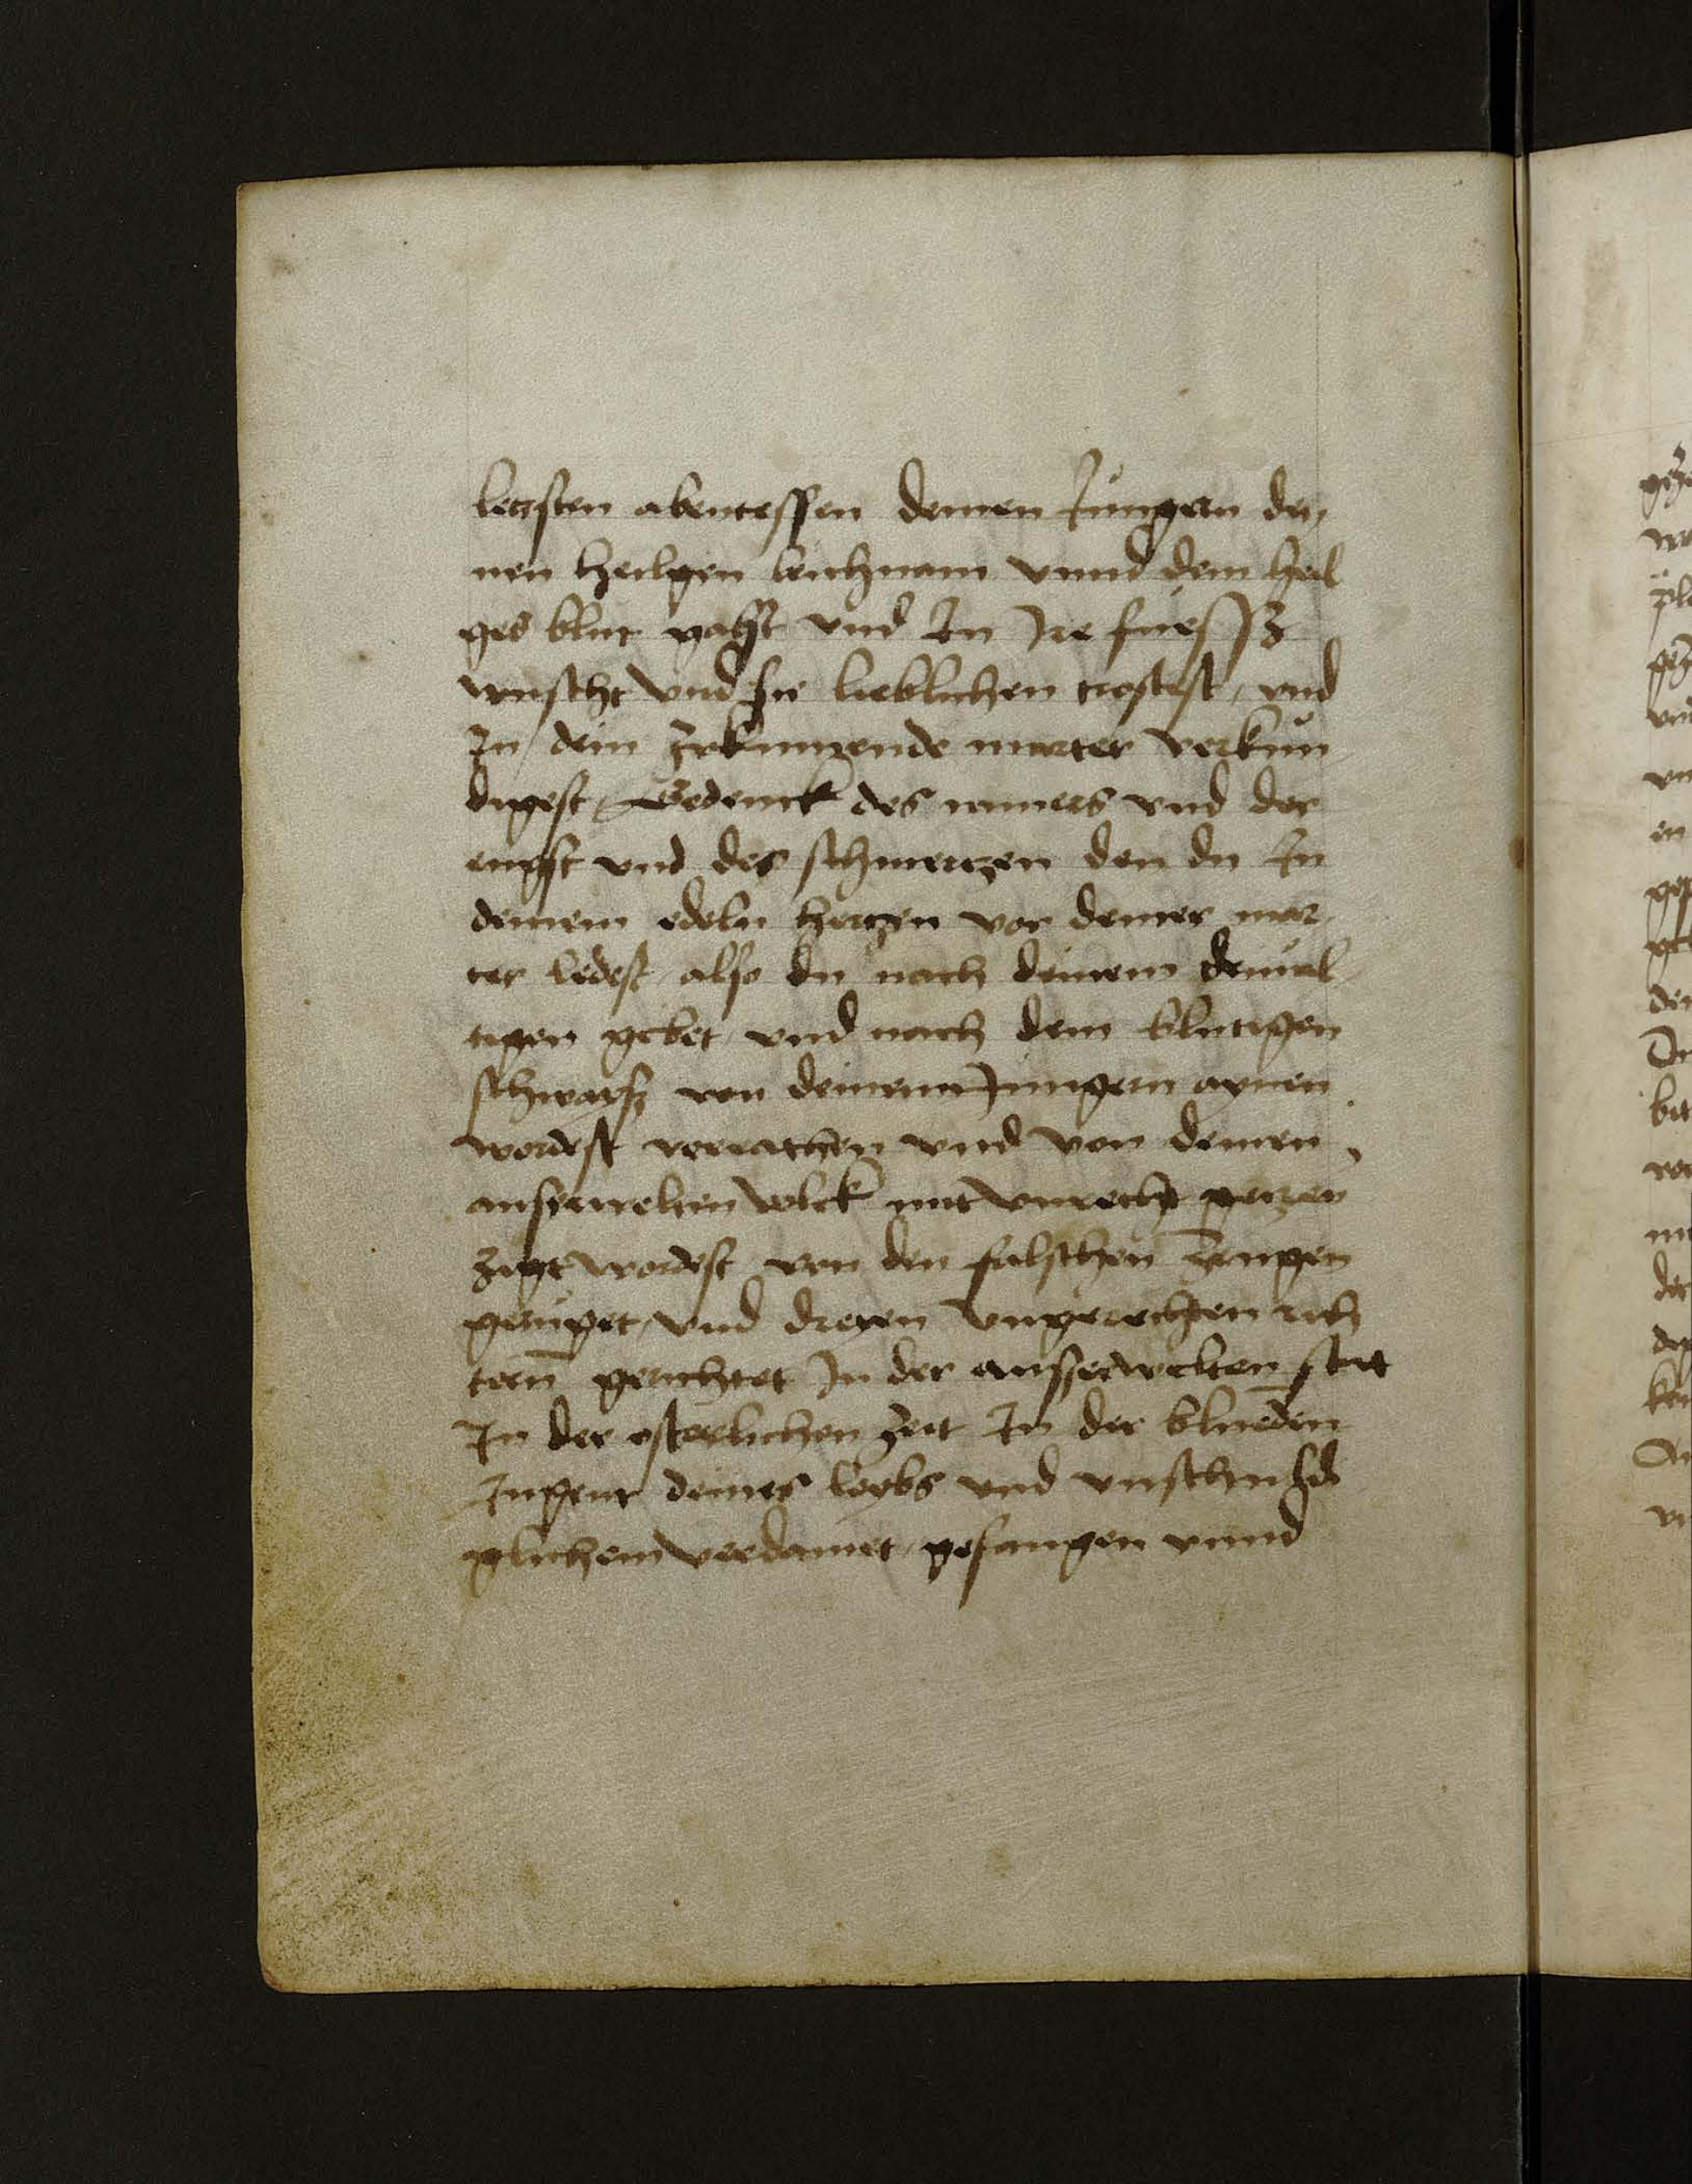 letzsten abentessen deinen Jungern dei
nen heiligen leichnam vnnd dein heil
ges blut gabst vnd In Jre füessz
wuscht vnd sie lieblichen trostest, vnd
In dein zukunnende marter verkün
digest, Gedenck des amers vnd der
engst vnd des schmertzen den du In
deinem edeln hertzen vor deiner mar
ter lidest also du nach deinem demüt
tigen gebet vnd nach dem blutigen
schwaisz von deinenn Jungern aynen
wordest verrathen vnd von deinen
auserwelten volck mit vnrecht
wordest von den falschen zeugen
gerüget, vnd dreyen vngerechten rich
tern gerichtet In der ausserwelten stat
In der osterlichen zeit In der bluenden
Jugent deines leybs vnd vnschuld
glichem verdamet, gefangen vnnd